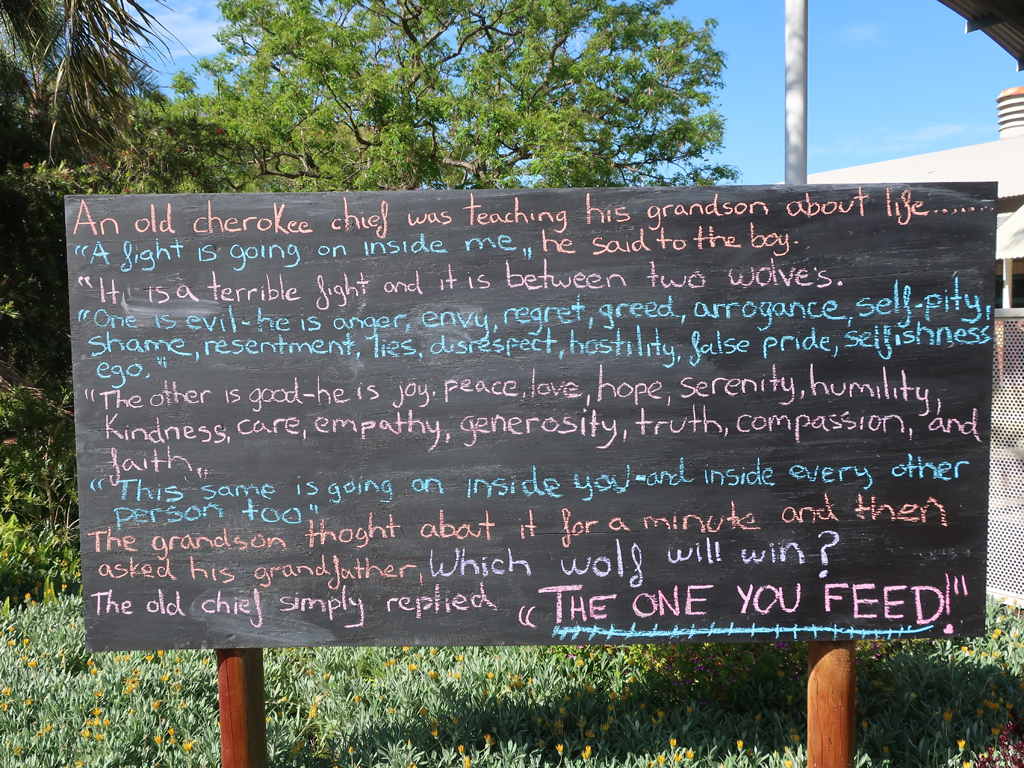 An old cherokee chief was teaching his grandson about life.......
"A fight is going on inside me,, he said to the boy.
"It is a terrible fight and it is between two wolve's.
"One is evil-he is anger, envy, regret, greed, arrogance, self-pity,
shame, resentment, lies, disrespect, hostility, false pride, selfishness
ego,"
"The other is good-he is joy, peace, love, hope, serenity, humility,
Kindness, care, empathy, generosity, truth, compassion, and
faith,,
"This same is going on inside you-and inside every other
person too"
The grandson thoght abat it for a minute and then
asked his grandfather, Which wolf will win?
The old chief simply replied "THE ONE YOU FEED!"